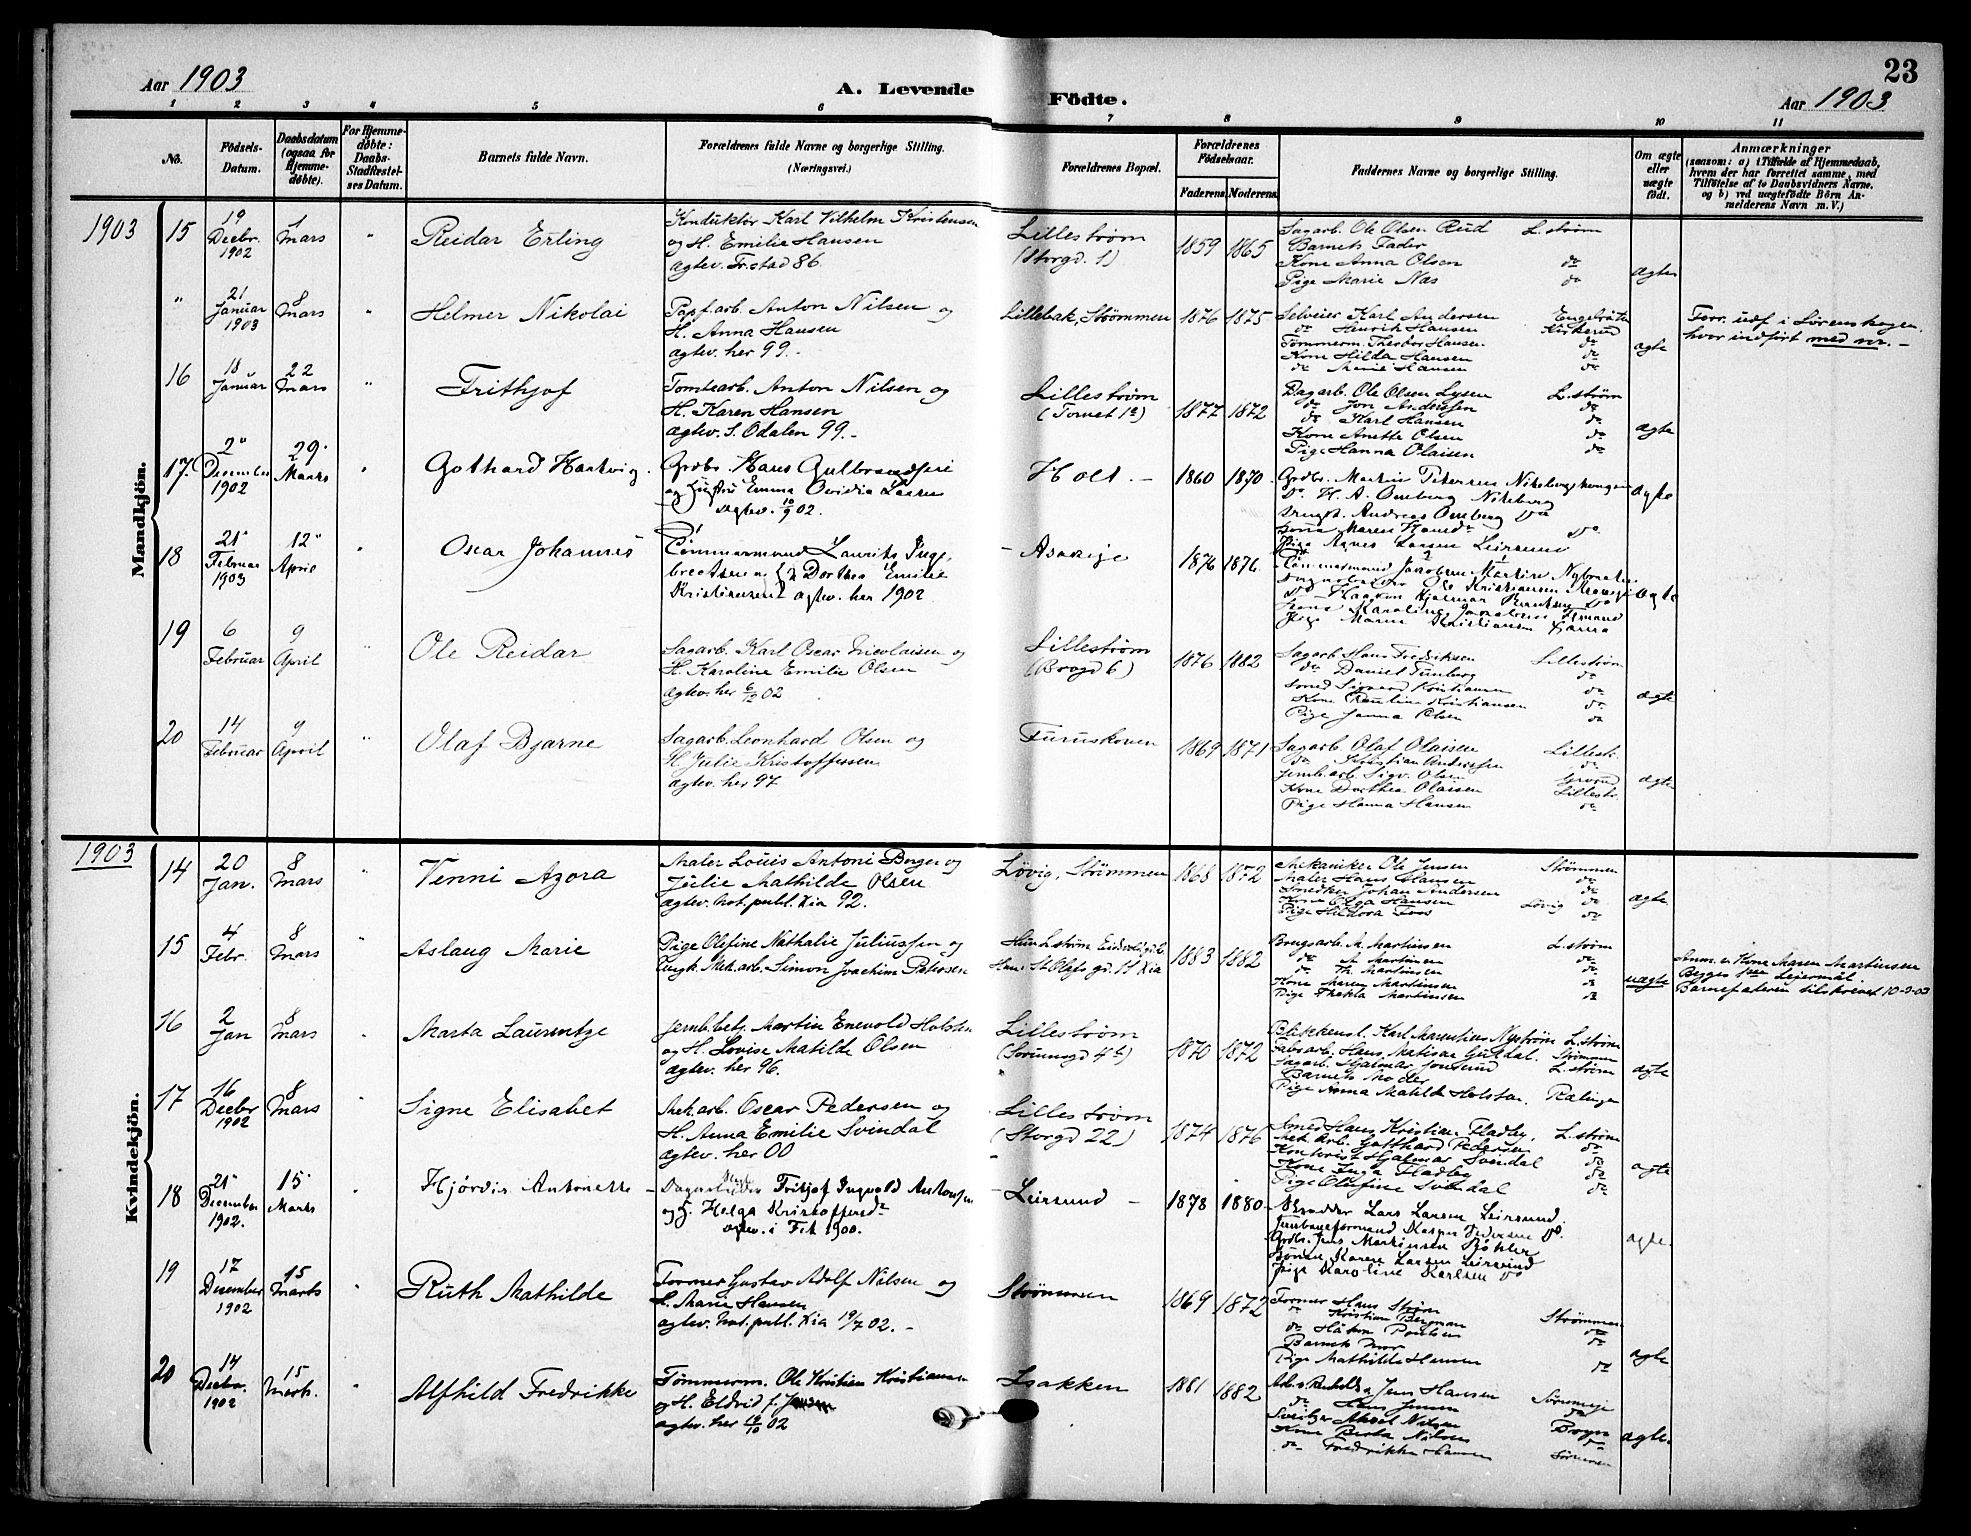 23
Aar 1903
A. Levende Födte.
Aar 1903
1 2 3 4 5 6 7 8 9 10 11
No.
Födsels-Datum.
Daabsdatum (ogsaa for Hjemme-döbte).
For Hjemme-döbte: Daabs-Stadfæstelses Datum.
Barnets fulde Navn.
Forældrenes fulde Navne og borgerlige Stilling. (Næringsvei.)
Forældrenes Bopæl.
Forældrenes Födselsaar.
Faderens Moderens
Faddernes Navne og borgerlige Stilling.
Om ægte eller uægte födt.
Anmærkninger (saasom: a) i Tilfælde af Hjemmedaab, hvem der har forrettet samme, med Tilföielse af to Daabsvidners Navne, og b) ved uægtefödte Börn Anmelderens Navn m. V.)
Mandkjön.
1903
15
19 Decbr. 1902
1 Mars
"
Reidar Erling
Konduktør Karl Vilhelm Kristensen
og H. Emilie Hansen
ægtev. Fr.stad 86.
Lillestrøm
(Storgd. 1)
1859
1865
Sagarb. Ole Olsen Rud L.strøm
Barnets Fader
Kone Anna Olsen do
Pige Marie Næs do
ægte
"
21 Januar 1903
8 Mars
"
Helmer Nikolai
Papf.arb. Anton Nilsen og
H. Anna Hansen
ægtev. her 99. -
Lillebæk, Strømmen
1876
1875
Selveier Karl Andersen
do Henrik Hansen
Tømmerm. Theodor Hansen do
Kone Hilda Hansen do
do Marie Hansen do
ægte
Forr. udf i Lørenskogen,
hvor indført med nr. -
16
18 Januar
22 Mars
"
Frithjof
Tomtearb. Anton Nilsen og
H. Karen Hansen
ægtev. S. Odalen 99. -
Lillestrøm
(Torvet 12)
1877
1872
Dagarb. Ole Olsen L.strøm
do Jon Andersen do
do Karl Hansen do
Kone Anette Olsen do
Pige Hanna Olaisen do
ægte
17.
2 December 1902
29. Marts
"
Gothard Hartvig.
Grdbr. Hans Gulbrandsen
og Hustru Emma Ovidia Larsen
ægtev. 10/9 02.
Holt. -
1860
1870
Grdbr. Martin Petersen
do H. A. Ornberg
Andreas Ornberg do
Kone Maren do
Pige Agnes Larsen Leirsund
ægte
18
21 Februar 1903
12 April
"
Oscar Johannes
Tømmermand Laurits Inge-
bretsen og H. Dorthea Emilie
Kristiansen ægtev. her 1902
- Asakeje
1876
1876.
Tømmermand
Pige Maren Kristiansen
ægte
19
6 Februar
9 April
"
Ole Reidar
Sagarb. Karl Oscar Nicolaisen og
H. Karoline Emilie Olsen
ægtev. her 6/12 02
Lillestrøm
(Brogd 6)
1876
1882
Sagarb. Hans Fredriksen Lillestrøm
do Daniel Tunberg do
Smed Sigvard Kristiansen do
Kone Paulina Kristiansen do
Pige Janna Olsen do
ægte
20
14 Februar
9 April
"
Olaf Bjarne
Sagarb. Leonhard Olsen og
H. Julie Kristoffersen
ægtev. her 97
Furuskoven
1869
1871
Sagarb. Olaf Olaisen Lillestr.
do Kristian Andersen do
Jernb.arb. Sigv. Olsen
Kone Dorthea Olaisen Lillestr.
Pige Hanna Hansen do
ægte
Kvindekjön.
1903
14
20 Jan.
8 Mars
"
Venni Azora
Maler Louis Antoni Berger og
Julie Mathilde Olsen
ægtev. Not. publ. Kia 92.
Løvig, Strømmen
1868
1872
Mekaniker Ole Jensen Strømmen
Maler Hans Hansen do
Smedker Johan Andersen do
Kone Olga Hansen Løvig do
Pige Hildora Foss do
ægte
15
4 Febr.
8 Mars
"
Aslaug Marie
Pige Olefine Nathalie Juliussen og
Ungk. Mek.arb. Simon Joachim Paulssen
Hun L.strøm
Han: St Olafs gd. 11 Kia
1883
1882
Brugsarb. M. Martinsen L.strøm
do A Martinsen do
do Th. Martinsen do
Kone Maren Martinsen do
Pige Thekla Martinsen do
uægte
Anm. v. Kone Maren Martinsen
Begges 1ste Leiermål.
Barnefaderen tilskrevet 10-3-03
16
2 Jan
8 Mars
"
Marta Laurentze
Jernb.betj. Martin Enevold Holsten
og H. Lovise Matilde Olsen
ægtev. her 96.
Lillestrøm
(Sørumsgd 4b)
1870
1872
Blikkensl. Karl Marentius Nystrøm L.strøm
Fabarb. Hans Matisen Guldal. Strømmen
Sagarb. Hjalmar L.strøm
Barnets Moder
Pige Anna Matilde Holsten. Rælingen
ægte
17
16 Decbr 1902
8 Mars
"
Signe Elisabet
Mek.arb. Oscar Pedersen og
H. Anna Emilie Svindal
ægtev. her 00
Lillestrøm
(Storgd 22)
1874
1876
Smed Hans Kristian Fladby. L.strøm
Mek arb. Gotthard Pedersen do
Kontorist Hjalmar Svindal do
Kone Inga Fladby do
Pige Olufine Svindal do
ægte
18
21 December 1902.
15 Marts
"
Hjørdis Antonette -
Dagarbeider Fritjof Ingvald Antonsen
og H. Helga Kristoffersdr
ægtev. i Fet 1900.
- Leirsund -
1878
1880.
Skrædder Lars Larsen Leirsund
Jernbaneformand Kasper Pedersen do.
Grdbr. Jens Martinsen
Karen Larsen Leirsund
Pige Karoline Karlsen do
ægte.
19
17 December 1902
15 Marts
Ruth Mathilde
Former Gustav Adolf Nilsen og
H. Marie Hansen
ægtev. Not. publ. Kia 19/7 02. -
Strømmen
1869
1872
Former Hans Strøm Strømmen
do Kristian Bergman do
do Håkon Poulsen do
Barnets Mor
Pige Mathilde Hansen do
ægte
20
14 Decbr. 1902
15 Marts.
"
Alfhild Fredrikke
Tømmerm. Ole Kristian Kristiansen
og H. Eldrid f. Jensen
ægtev. her 19/10 02
Isakken
1881
1882
Jens Hansen
do Hans Jensen do
Aksel Nilsen
Kone Berta Nilsen do
do Fredrikke Hansen
ægte.